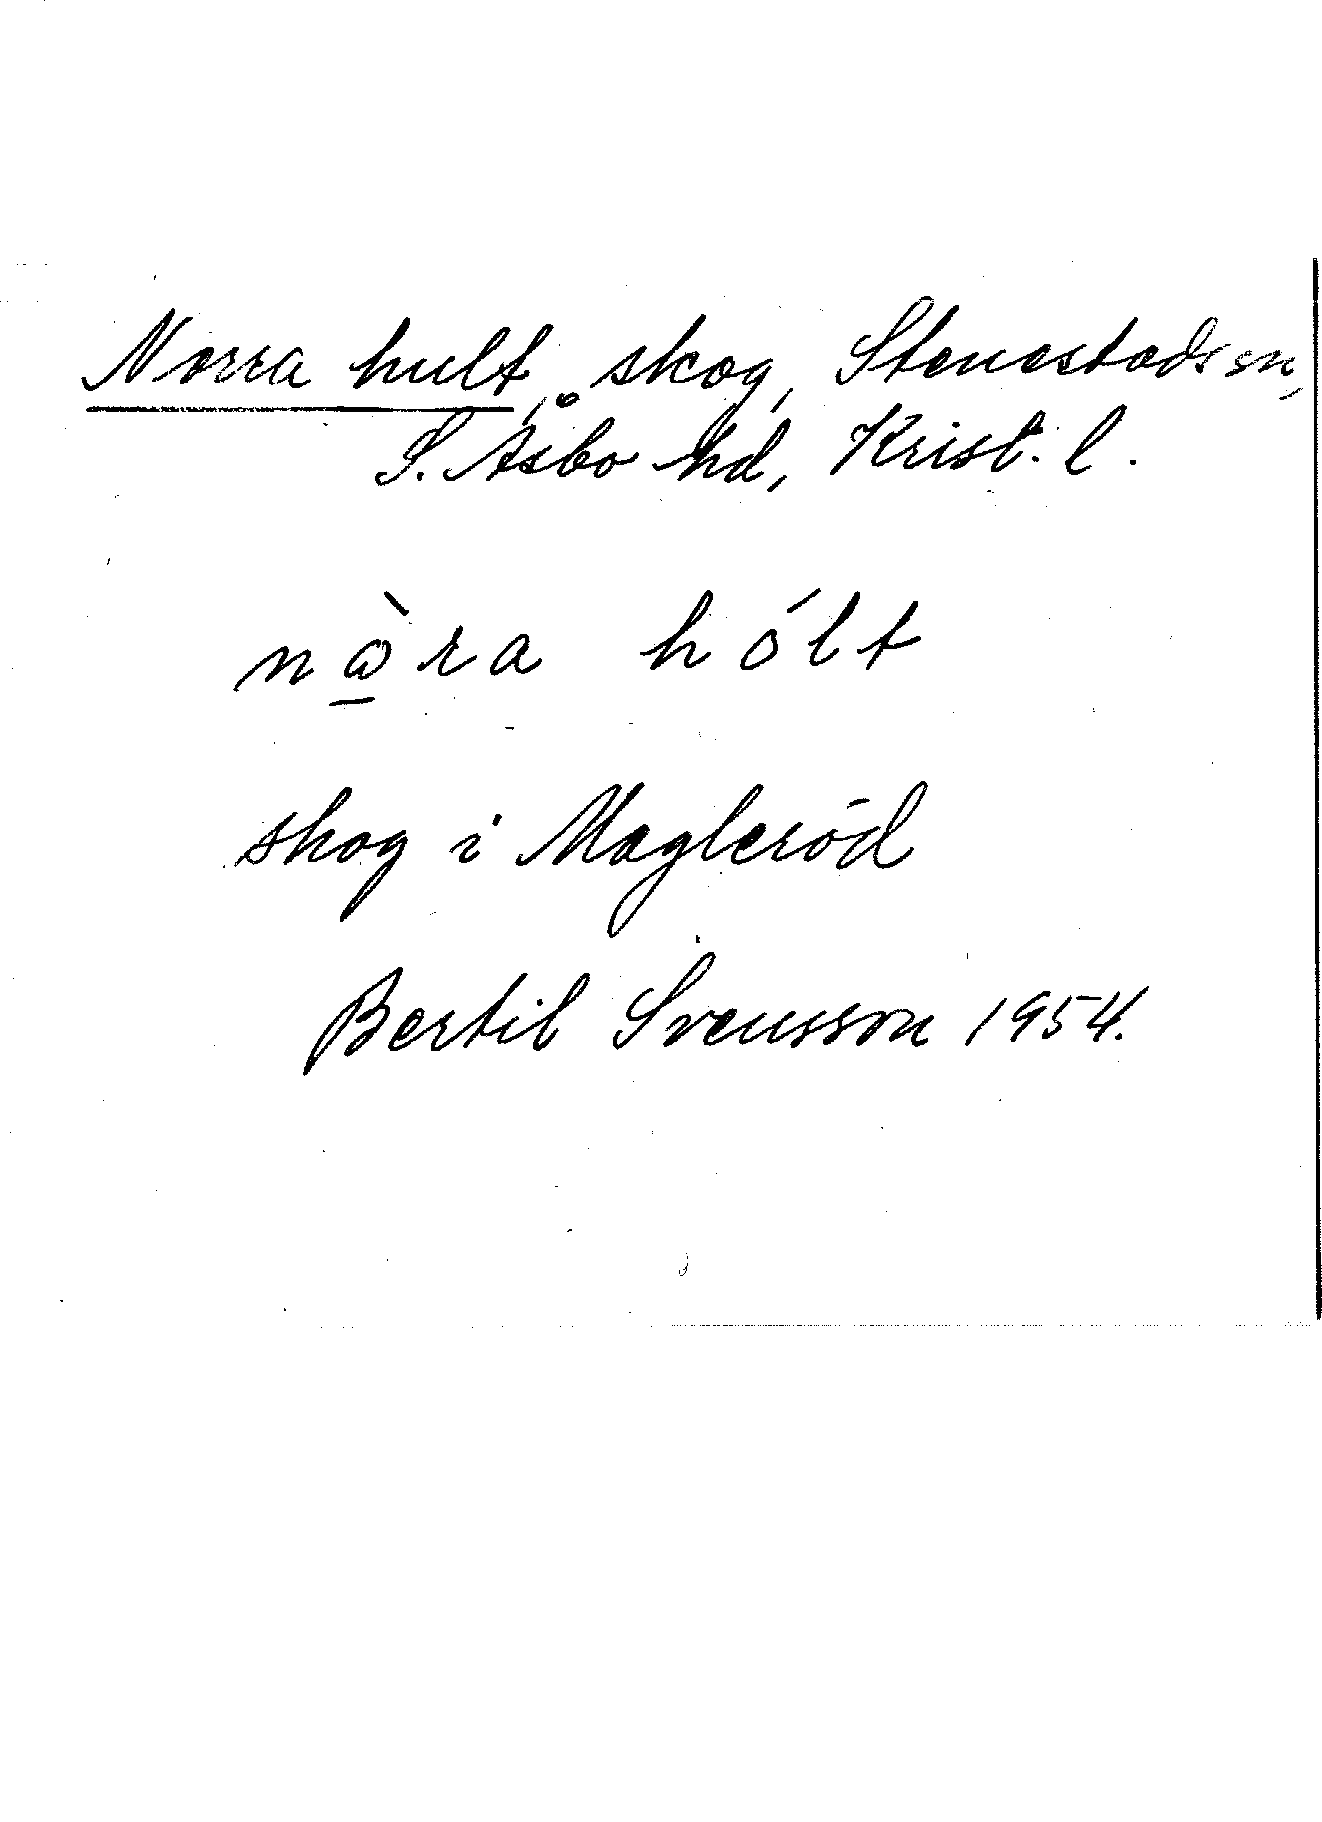 Norra hult, skog, Stenestads sn,
S. Åsbo hd, Krist. l.
nò̱ra hólt
skog i Magleröd
Bertil Svensson 1954.